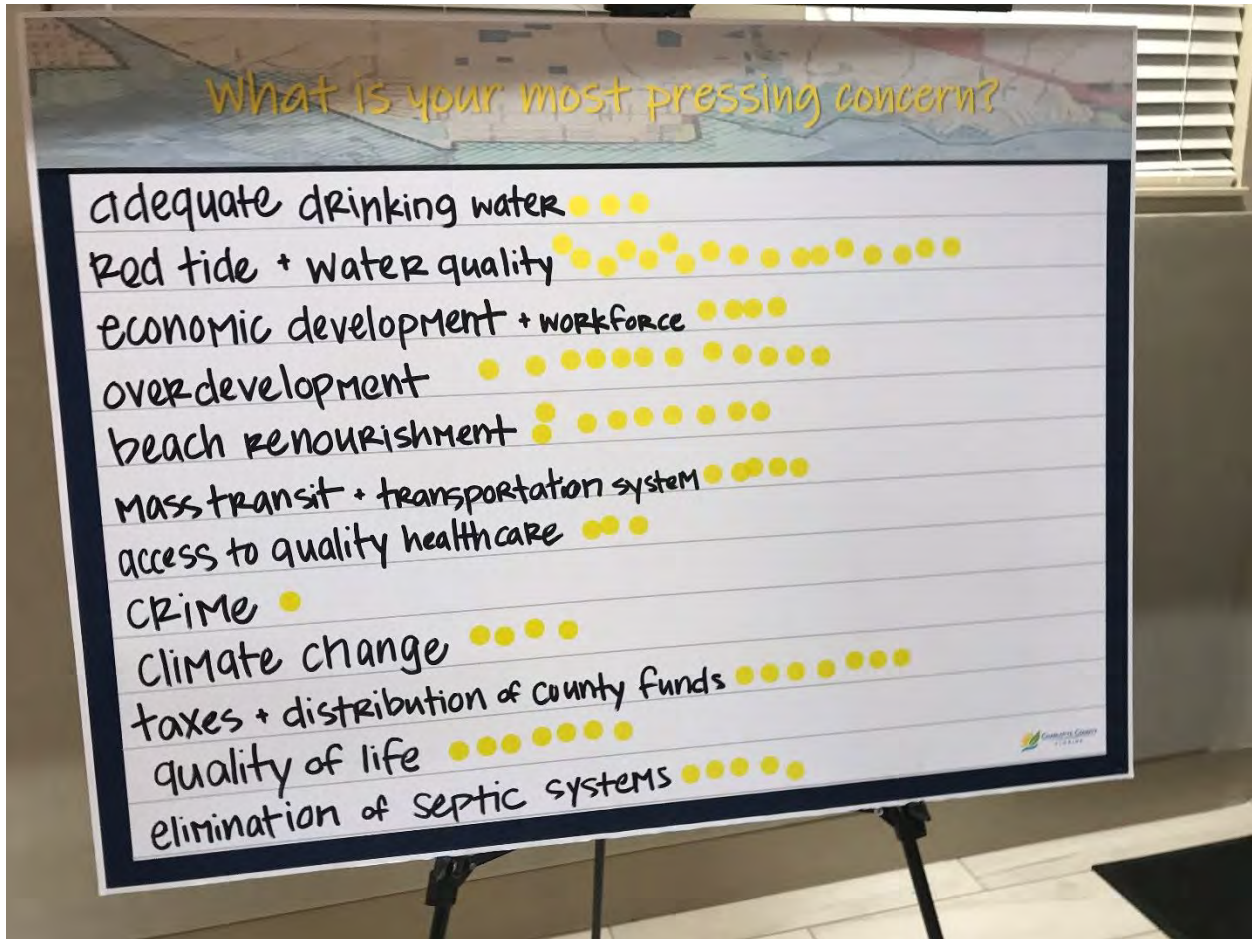 What is your most pressing concern?
adequate drinking water
Red tide + water quality
economic development + workforce
overdevelopment
beach renourishment
mass transit + transportation system
access to quality healthcare
crime
climate change
taxes + distribution of county funds
quality of life
elimination of septic systems
CHARLOTTE COUNTY
FLORIDA